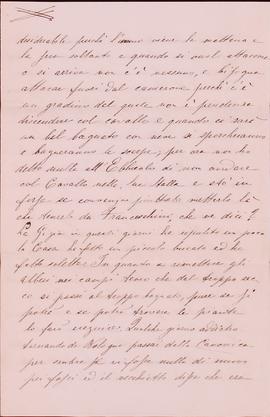 desiderabile perché l'uomo viene la mattina e
la sera soltanto e quando si vuol attaccare
o si arriva non c'è nessuno, e bisogna
attaccar fuori dal camerone perché c'è
un gradino del quale non è prudenza
discendere col cavallo e quando ci sarà
un bel bagnato con neve si sporcheranno
e bagneranno le scarpe; per ora non ho
detto nulla all' di non andare
col Cavallo nella sua Stalla e sto in
forse se convenga piuttosto metterlo là
che tenerlo da Franceschini, che ne dici?
La Gigia in questi giorni ha ripulito un poco
la Casa ha fatto un piccolo bucato ed ha
fatto In quanto a rimettere gli
alberi nei campi temo che dal troppo sec
co si passi al troppo bagnato, pure se si
potrà e se potrò trovare le piante
lo farò eseguire. Qualche giorno addietro
tornando da Bologna passai dalla Canonica
per sentire se vi fosse nulla di nuovo
per fossi ed il vecchietto disse che era